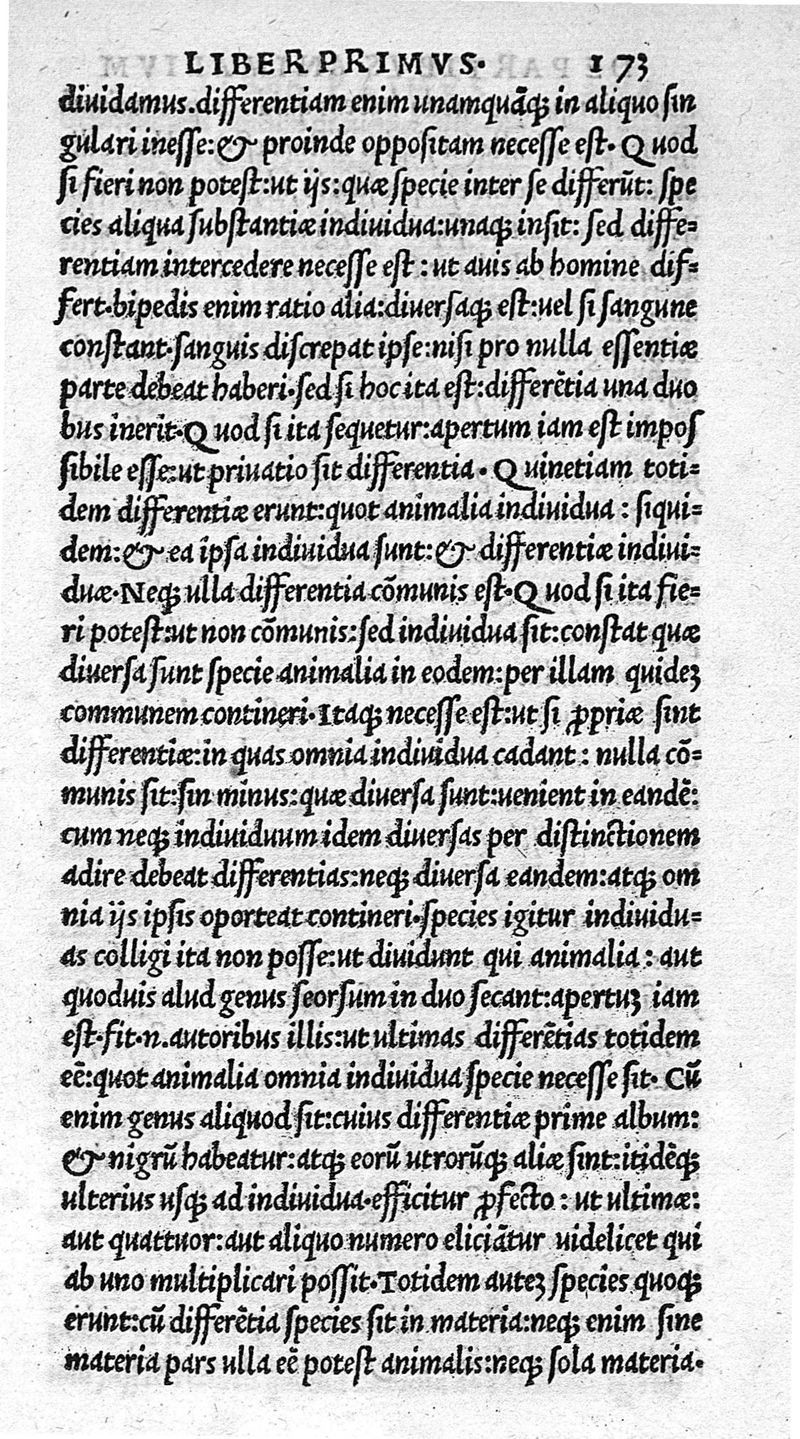 LIBER PRIMVS. 173
diuidamus.differentiam enim unamquāq; in aliquo sin
gulari inesse:& proinde oppositam necesse est. Quod
si fieri non potest:ut ijs:quæ specie inter se differūt: spe
cies aliqua substantiæ indiuidua:unaq; insit: sed diffe=
rentiam intercedere necesse est : ut auis ab homine dif=
fert.bipedis enim ratio alia:diuersaq; est:uel si sangune
constant.sanguis discrepat ipse:nisi pro nulla essentiæ
parte debeat haberi.sed si hoc ita est:differētia una duo
bus inerit.Quod si ita sequetur:apertum iam est impos
sibile esse:ut priuatio sit differentia. Quinetiam toti=
dem differentiæ erunt:quot animalia indiuidua : siqui=
dem:& ea ipsa indiuidua sunt:& differentiæ indiui=
duæ.Neq; ulla differentia cōmunis est.Quod si ita fie=
ri potest:ut non cōmunis:sed indiuidua sit:constat quæ
diuersa sunt specie animalia in eodem:per illam quideʒ
communem contineri.Itaq; necesse est:ut si ꝓpriæ sint
differentiæ:in quas omnia indiuidua cadant : nulla cō=
munis sit:sin minus:quæ diuersa sunt:uenient in eandē:
cum neq; indiuiduum idem diuersas per distinctionem
adire debeat differentias:neq; diuersa eandem:atq; om
nia ijs ipsis oporteat contineri.species igitur indiuidu=
as colligi ita non posse:ut diuidunt qui animalia : aut
quoduis alud genus seorsum in duo secant:apertuʒ iam
est.fit.n.autoribus illis:ut ultimas differētias totidem
eē:quot animalia omnia indiuidua specie necesse sit. Cū
enim genus aliquod sit:cuius differentiæ prime album:
& nigrū habeatur:atq; eorū utrorūq; aliæ sint:itidēq;
ulterius usq; ad indiuidua.efficitur ꝓfecto : ut ultimæ:
aut quattuor:aut aliquo numero eliciātur uidelicet qui
ab uno multiplicari possit.Totidem auteʒ species quoq;
erunt:cū differētia species sit in materia:neq; enim sine
materia pars ulla eē potest animalis:neq; sola materia.